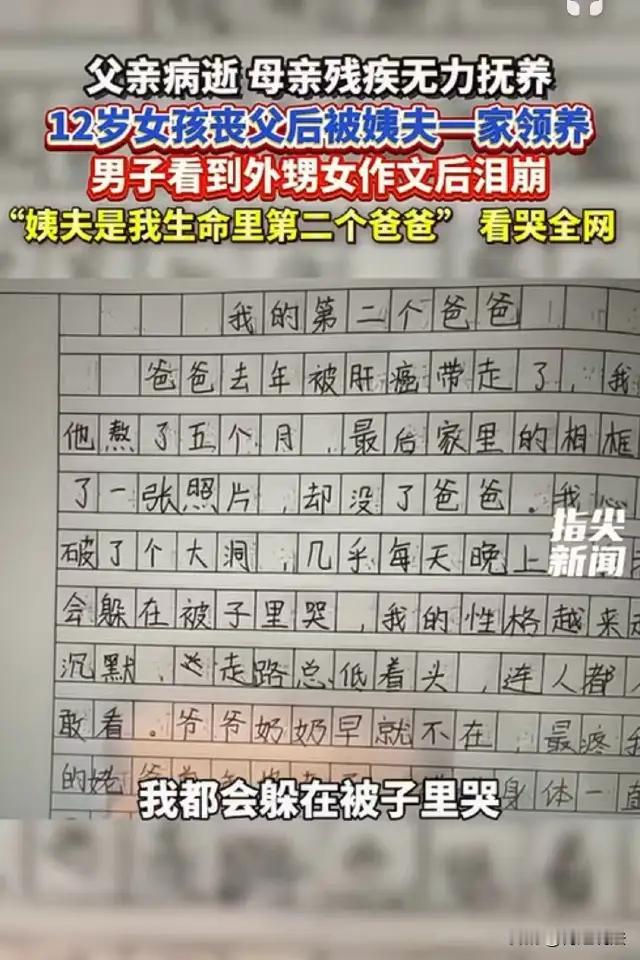 父亲病逝 母亲残疾无力抚养
12岁女孩丧父后被姨夫一家领养
男子看到外甥女作文后泪崩
“姨夫是我生命里第二个爸爸” 看哭全网
我的第二个爸爸
爸爸去年被肝癌带走了,我
他熬了五个月,最后家里的相框
了一张照片,却没了爸爸。我心
破了个大洞,几乎每天晚上
会躲在被子里哭,我的性格越来
沉默,走路总低着头,连人都
敢看。爷爷奶奶早就不在,最疼我
的姥爷
身体一直
指尖
新闻
我都会躲在被子里哭